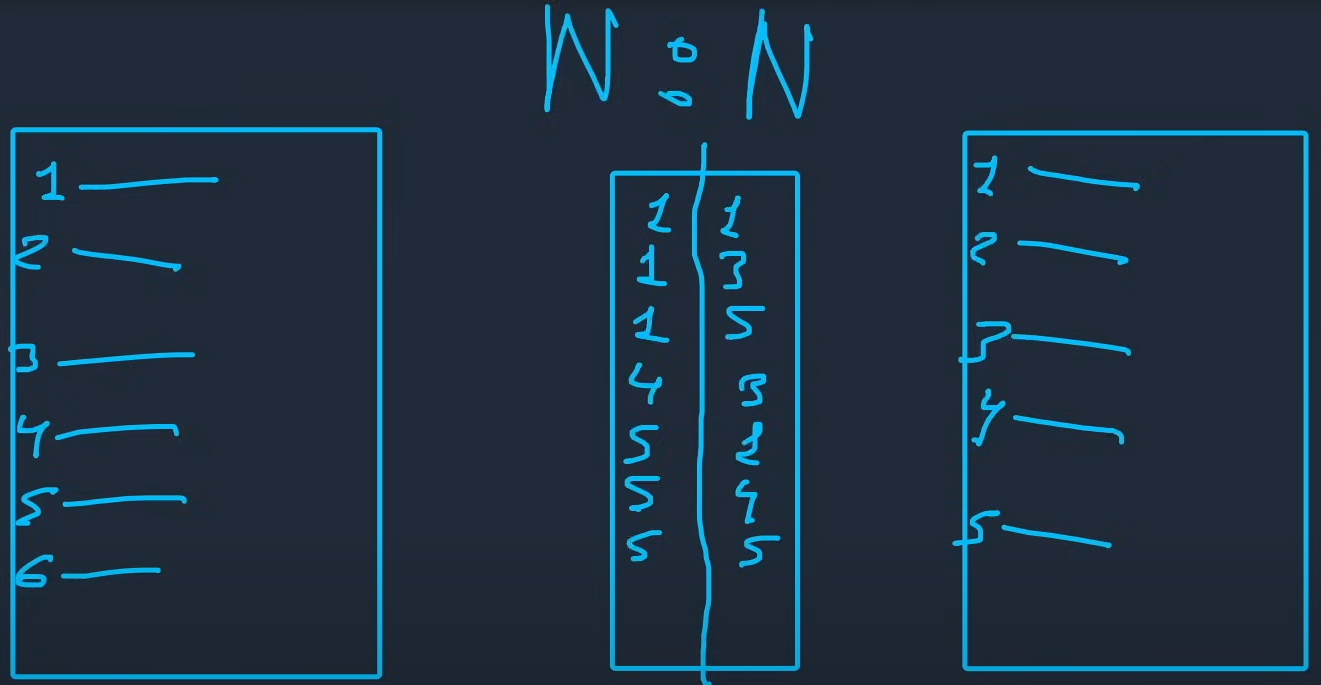 N : N
1
2
3
4
5
6
1 1
1 3
1 5
4 3
5 1
5 4
5 5
1
2
3
4
5